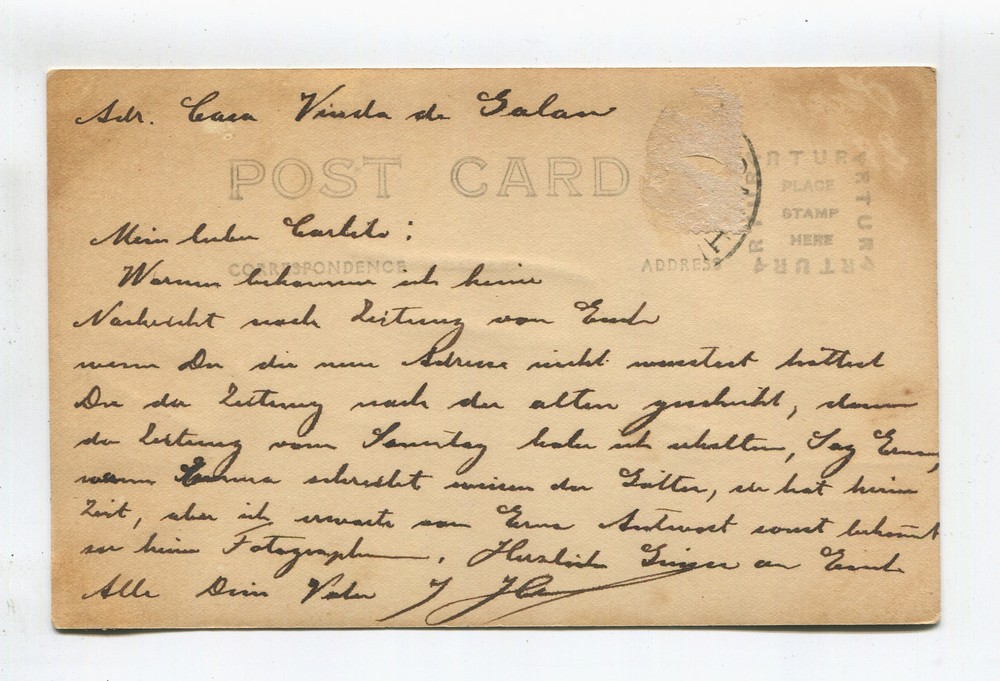 Adr. Casa Viuda de Galan
POST CARD
ARTURA
PLACE
STAMP
HERE
Mein lieber Carlito;
CORRESPONDENCE
ADDRESS
Warum bekomme ich keine
Nachricht noch Zeitung von Euch
wenn Du die neue Adresse nicht wusstest hättest
Du die Zeitung nach der alten geschickt, denn
die Zeitung vom Sonntag habe ich erhalten, Sag Erna,
wann Emma schreibt wissen die Götter, sie hat keine
Zeit, aber ich erwarte von Erna Antwort sonst bekomt
sie keine Fotographien. Herzliche Grüsse an Euch
Alle Dein Vater